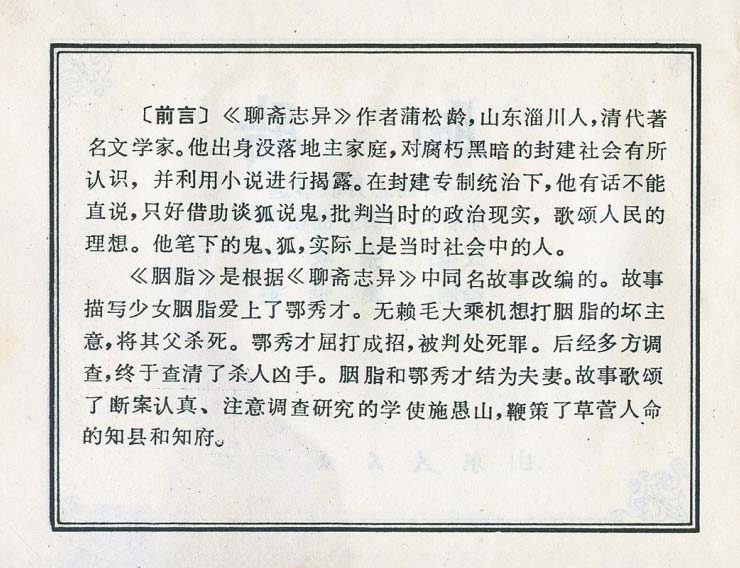 〔前言〕《聊斋志异》作者蒲松龄，山东淄川人，清代著
名文学家。他出身没落地主家庭，对腐朽黑暗的封建社会有所
认识，并利用小说进行揭露。在封建专制统治下，他有话不能
直说，只好借助谈狐说鬼，批判当时的政治现实，歌颂人民的
理想。他笔下的鬼、狐，实际上是当时社会中的人。
《胭脂》是根据《聊斋志异》中同名故事改编的。故事
描写少女胭脂爱上了鄂秀才。无赖毛大乘机想打胭脂的坏主
意，将其父杀死。鄂秀才屈打成招，被判处死罪。后经多方调
查，终于查清了杀人凶手。胭脂和鄂秀才结为夫妻。故事歌颂
了断案认真、注意调查研究的学使施愚山，鞭策了草菅人命
的知县和知府。